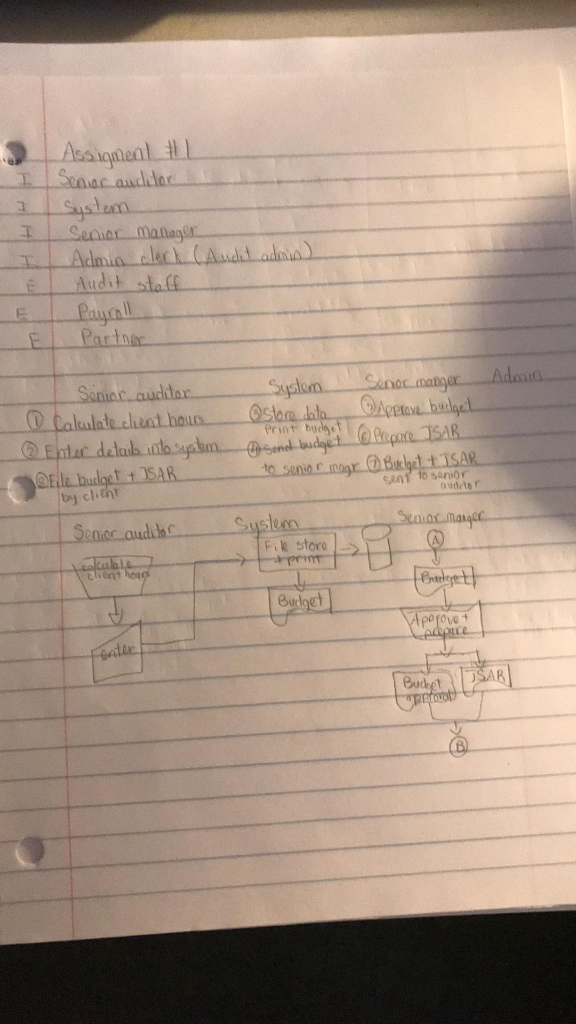 Assigment #1
I Senior auditor
I System
I Senior manager
I Admin clerk (Audit admin)
E Audit staff
E Payroll
E Partner
Senior auditor System Senior manger Admin
① Calculate client hours ③ Store data ⑤ Approve budget
print budget
② Enter details into system ④ Send budget ⑥ Prepare JSAR
to senior magr ⑦ Budget + JSAR
sent to senior
auditor
⑧ File budget + JSAR
by client
Senior auditor System Senior manger
calculate
client hours
enter
File store
+ print
Budget
A
Budget
Approve +
prepare
Budget
approval
JSAR
B